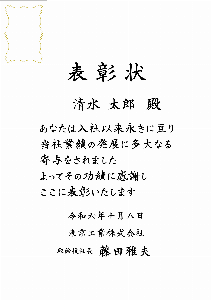 表彰状
清水 太郎 殿
あなたは入社以来永きに亘り
当社業績の発展に多大なる
寄与をされました
よってその功績に感謝し
ここに表彰いたします
令和六年十月八日
東京工業株式会社
取締役社長 藤田雅夫